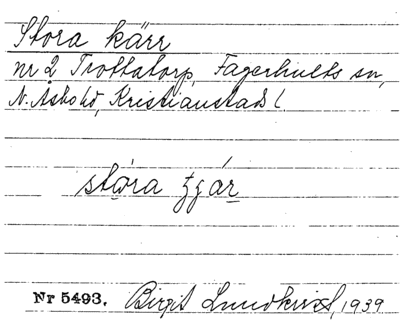 Stora kärr
nr 2 Trottatorp, Fagerhults sn,
N. Åsbo hd, Kristianstads l
stóra tjár
Nr 5493. Birgit Lundkvist, 1939